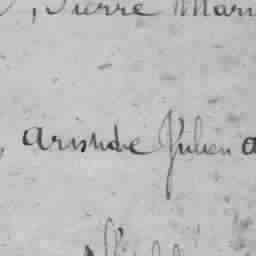 , Pierre Mari
, aristide Julien a